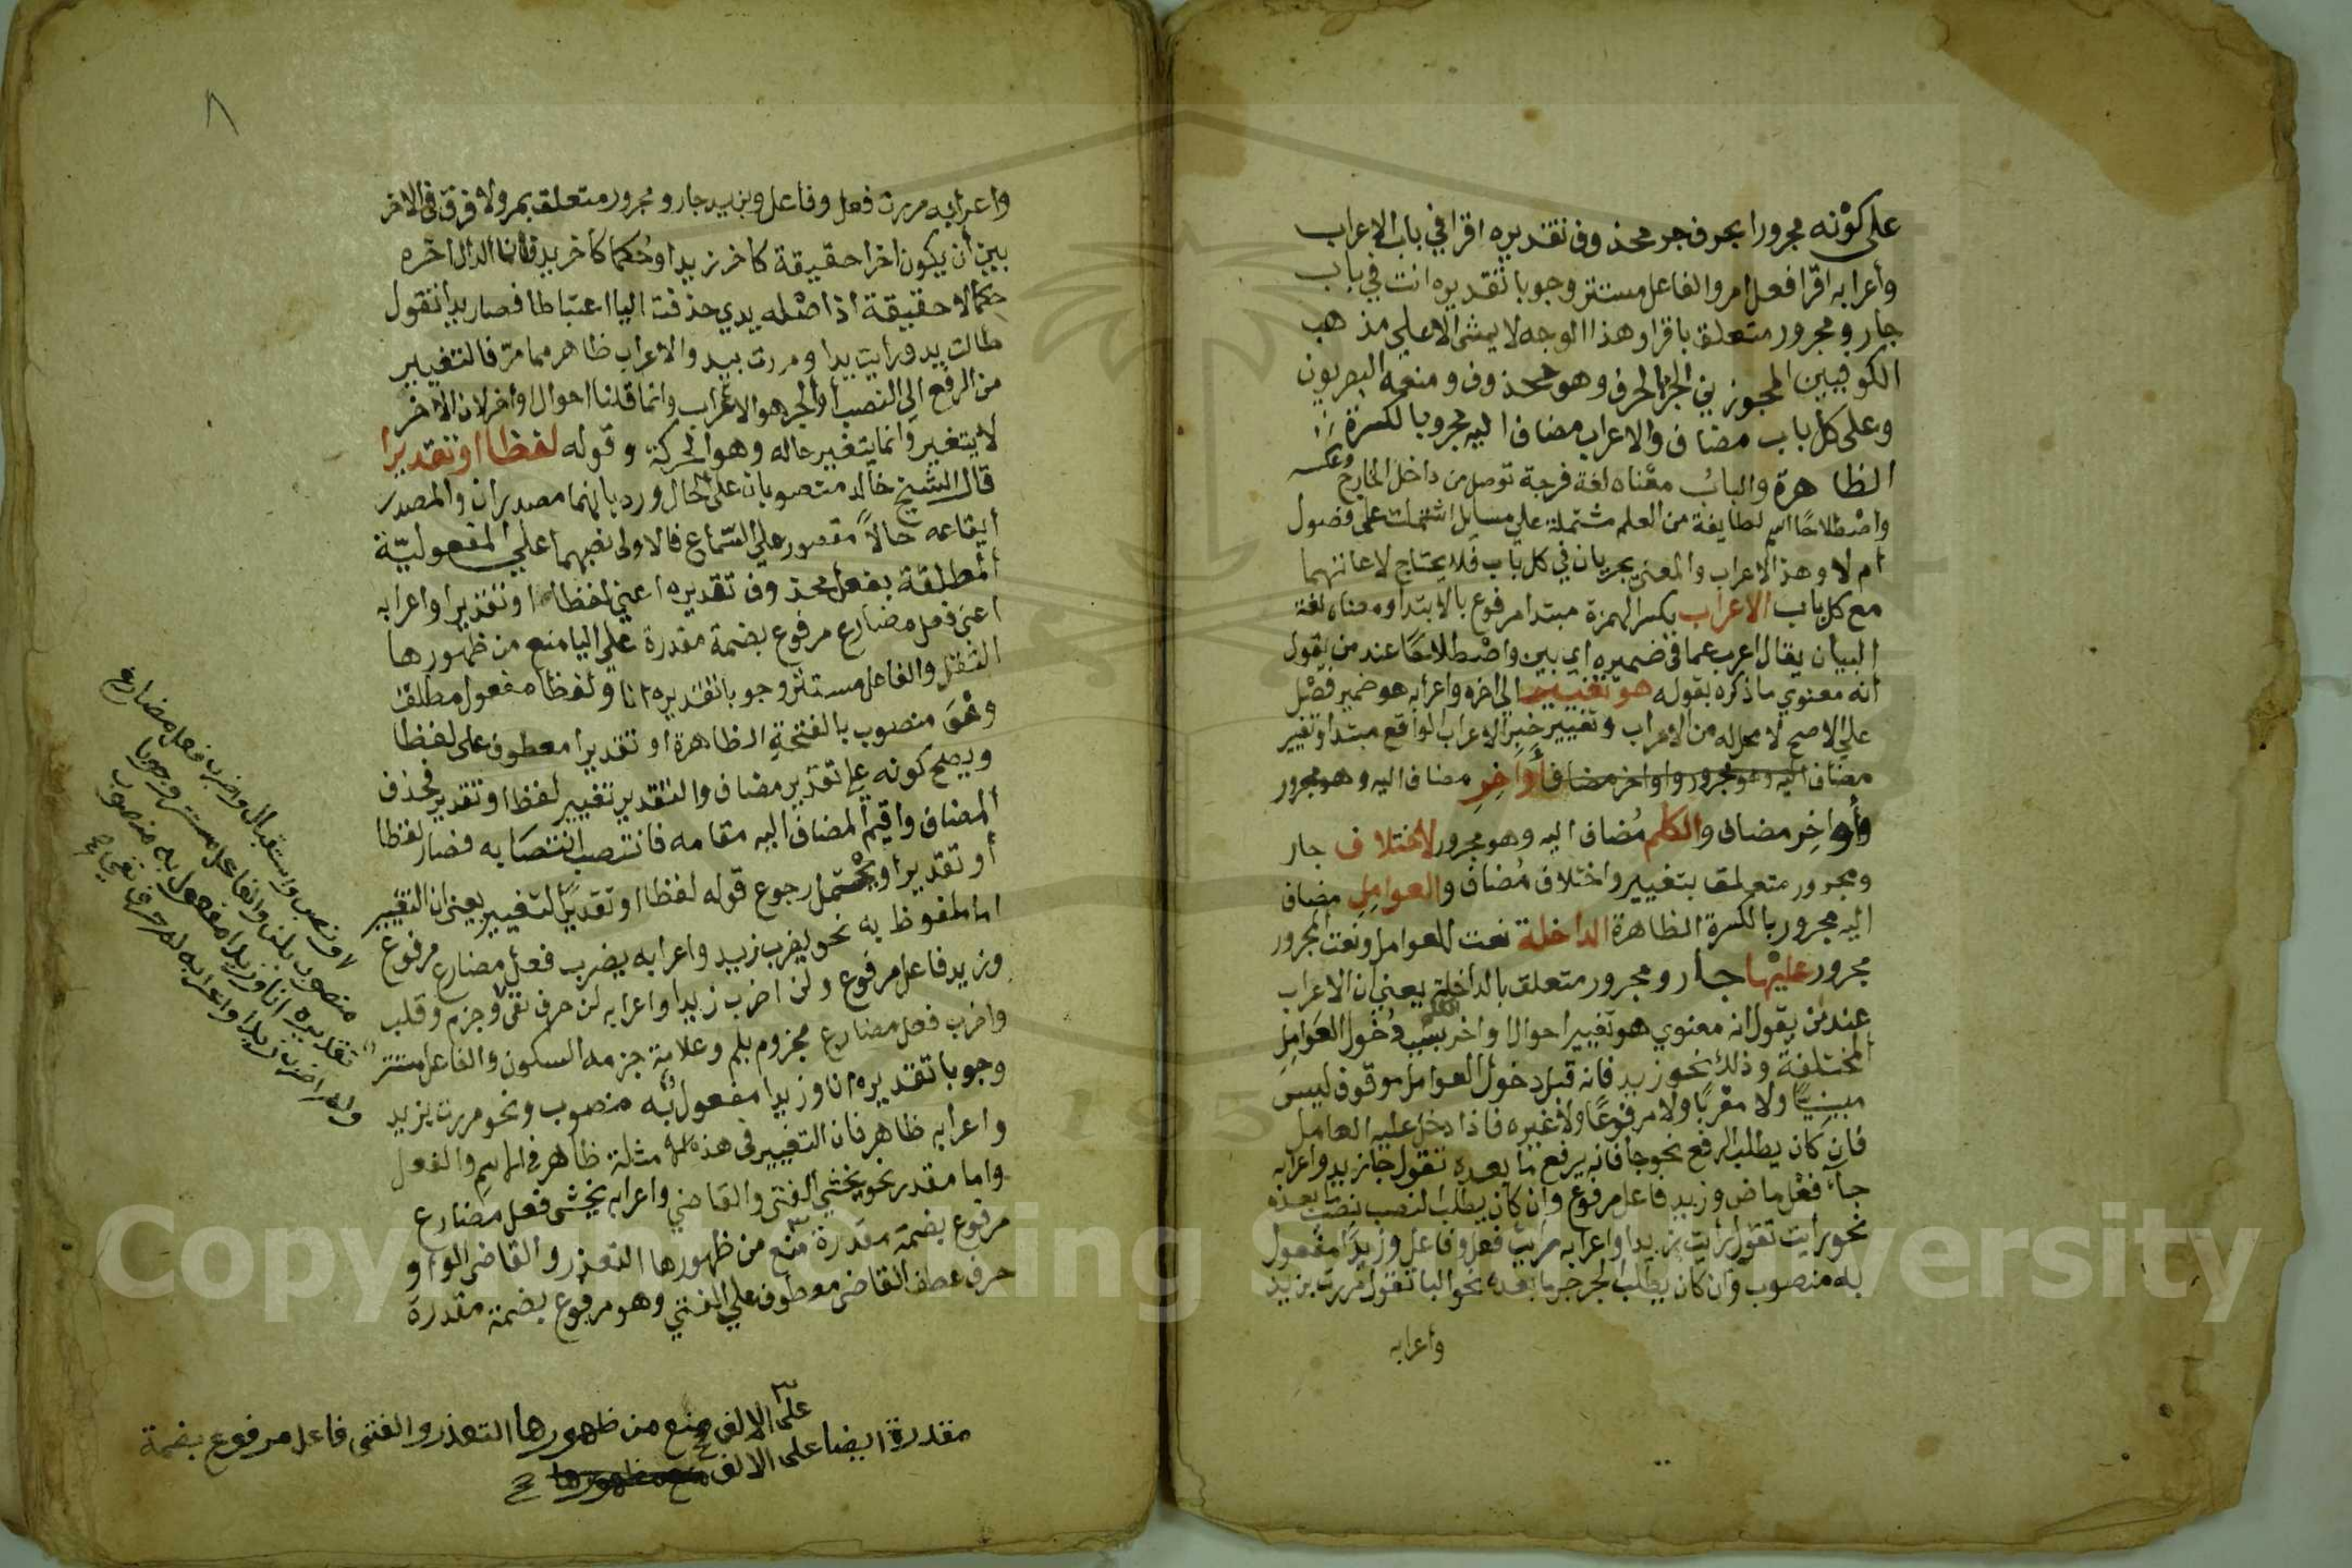 على كونه مجرورا بحرف جر محذوف تقديره اقرا في باب الاعراب
وأعرابه اقرا فعل امر والفاعل مستتر وجوبا تقديره انت في باب
جار ومجرور متعلق باقرا وهذا الوجه لا يمشى الا علي مذهب
الكوفيين المجوزين الجر بالحرف وهو محذوف ومنعه البصريون
وعلى كل باب مضاف والاعراب مضاف اليه مجرور بالكسرة
الظاهرة والباب معناه لغة فرجة توصل من داخل الخارج وعكسه
واصطلاحًا اسم لطايفة من العلم مشتملة علي مسايل اشتملت على فصول
ام لا وهذا الاعراب والمعنى يجريان في كل باب فلا يحتاج لاعادتهما
مع كل باب الاعراب بكسر الهمزة مبتدا مرفوع بالابتدا ومعناه لغة
البيان يقال اعرب عما فى ضميره اي بين واصطلاحًا عند من يقول
انه معنوي ما ذكره بقوله هو تغيير الى اخره واعرابه هو ضمير فصل
علي الاصح لا محل له من الاعراب وتغيير خبر الاعراب الواقع مبتدا وتغيير
مضاف اليه وهو مجرور واواخر مضاف أواخِرِ مضاف اليه وهو مجرور
وأواخِر مضاف والكلم مُضاف اليه وهو مجرور لاختلاف جار
ومجرور متعلق بتغيير واختلاف مُضاف والعوامِلِ مضاف
اليه مجرور بالكسرة الظاهرة الداخلة نعت للعوامل ونعت المجرور
مجرور عليها جار ومجرور متعلق بالداخلة يعني ان الاعراب
عند من يقول انه معنوي هو تغيير احوال اواخر بسبب دُخول العَوامِلِ
المختلفة وذلك نحو زيد فانه قبل دخول العوامل موقوف ليس
مبنيًّا ولا معْربًا ولا مرفوعًا ولا غيره فاذا دخل عليه العامل
فان كان يطلب الرفع نحو جا فانه يرفع ما بعده تقول جا زيد واعرابه
جآء فعْل ماض وزيد فاعل مرفوع وان كان يطلب النصب نصب ما بعده
نحو رايت تقول رايت زيدا واعرابه رايت فعل وفاعل وزيدًا مفعول
به منصوب وان كان يطلب الجر جر ما بعده نحو البا تقول مررت بزيد
وأعرابه
٨
واعرابه مررت فعل وفاعل وبزيد جار ومجرور متعلق بمر ولا فرق فى الاخر
بين أن يكون اخرا حقيقة كاخر زيد او حُكما كاخر يد فان الدال اخره
حكما لا حقيقة اذ اصْله يدي حذفت اليا اعتباطا فصار يد تقول
طالت يد ورايت يدا ومررت بيد والاعراب ظاهر مما مر فالتغيير
من الرفع الى النصب أو الجر هو الاعراب وانما قلنا احوال اواخر لان الاخر
لا يتغير وانما يتغير حاله وهو الحركة وقوله لفظا او تقديرا
قال الشيخ خالد منصوبان على الحال ورد بانهما مصدران والمصدر
ايقاعه حالاً مقصور علي السّماع فالاولى نصبهما علي المفعوليّة
المطلقة بفعل محذوف تقديره اعني لفظا او تقديرا واعرابه
اعنى فعل مضارع مرفوع بضمة مقدرة علي اليا منع من ظهورها
الثقل والفاعل مستتر وجوبا تقديره انا ولفظا مفعول مطلق
وهْوَ منصوب بالفتحةِ الظاهرة او تقديرا معطوف على لفظا
ويصح كونه علي تقدير مضاف والتقدير تغيير لفظ او تقدير فحذف
المضاف واقيم المضاف اليه مقامه فانتصب انتصَابه فصار لفظا
أو تقديرا ويحْتمل رجوع قوله لفظا او تقديرًا لتغيير يعنى ان التغيير
اما ملفوظ به نحو يضرب زيد واعرابه يضرب فعل مضارع مرفوع
وزيد فاعل مرفوع ولن اضرب زيدا واعرابه لن حرف نفى وجزم وقلب
واضرب فعل مضارع مجزوم بلم وعلامة جزمه السكون والفاعل مستتر
وجوبا تقديره انا وزيدا مفعول به منصوب ونحو مررت بزيد
واعرابه ظاهر فان التغيير فى هذه الامثلة ظاهر في الاسم والفعل
واما مقدر نحو يخشي الفتى والقاضي واعرابه يخشى فعل مضارع
مرفوع بضمة مقدّرة منع من ظهورها التعذر والقاضى الواو
حرف عطف القاضى معطوف علي الفتي وهو مرفوع بضمة مقدرة
على الالف منع من ظهورها التعذر والفتى فاعل مرفوع بضمة
مقدرة ايضا على الالف
ونصب واستقبال واضرب فعل مضارع
منصوب بلن والفاعل مستتر وجوبا
تقديره انا وزيدا مفعول به منصوب
ولم اضرب زيدا واعرابه لم حرف نفي
Copyright © King Saud University
195